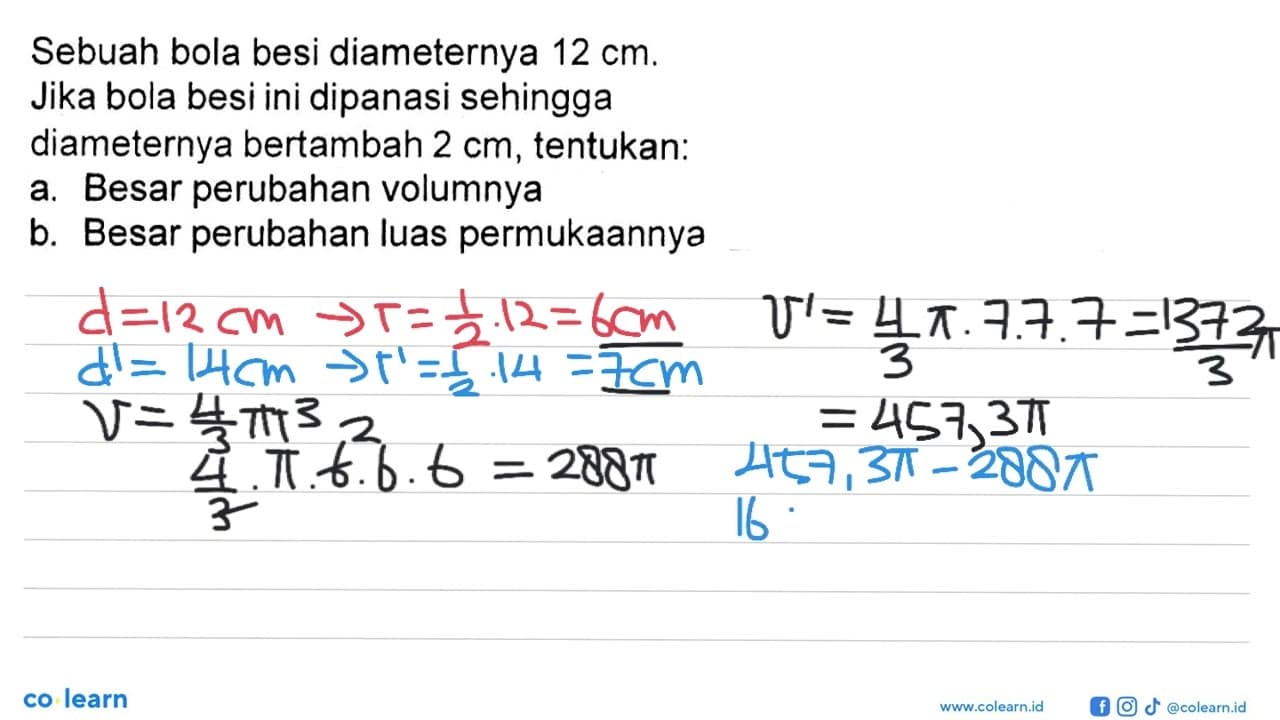 Sebuah bola besi diameternya 12 cm.
Jika bola besi ini dipanasi sehingga
diameternya bertambah 2 cm, tentukan:
a. Besar perubahan volumnya
b. Besar perubahan luas permukaannya
d = 12 cm → r = 1/2 . 12 = 6 cm
d' = 14 cm → r' = 1/2 . 14 = 7 cm
V = 4/3 πr³
4/3 . π . 6 . 6 . 6 = 288π
2
V' = 4/3 π . 7 . 7 . 7 = 1372/3 π
= 457,3π
457,3π - 288π
16
co learn
www.colearn.id
@colearn.id